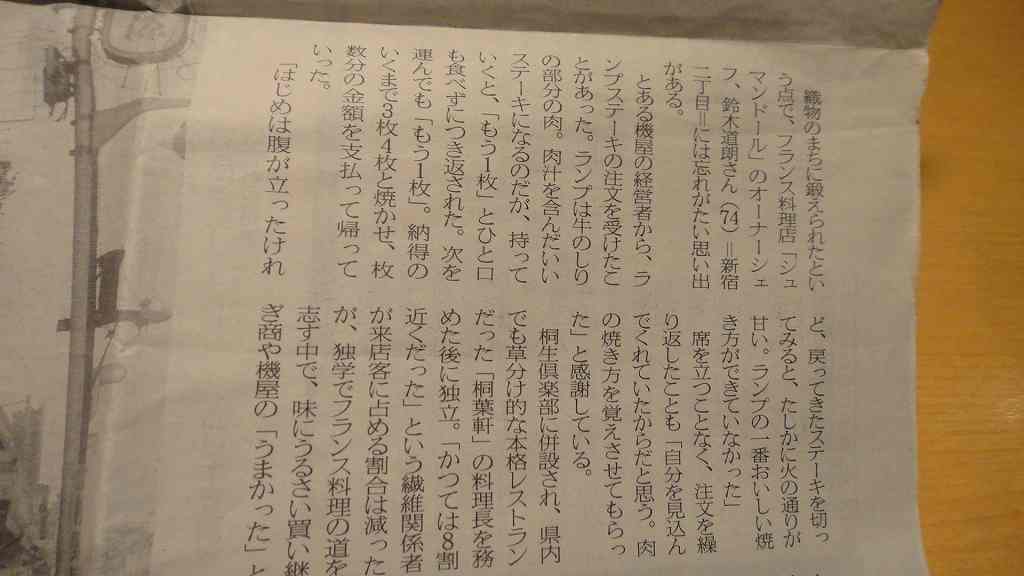 織物のまちに鍛えられたとい
う点で、フランス料理店「ジュ
マンドール」のオーナーシェ
フ、鈴木道朗さん（74）＝新宿
二丁目＝には忘れがたい思い出
がある。
とある機屋の経営者から、ラ
ンプステーキの注文を受けたこ
とがあった。ランプは牛のしり
の部分の肉。肉汁を含んだいい
ステーキになるのだが、持って
いくと、「もう1枚」とひと口
も食べずにつき返された。次を
運んでも「もう1枚」。納得の
いくまで3枚4枚と焼かせ、枚
数分の金額を支払って帰って
いった。
「はじめは腹が立ったけれ
ど、戻ってきたステーキを切っ
てみると、たしかに火の通りが
甘い。ランプの一番おいしい焼
き方ができていなかった」
席を立つことなく、注文を繰
り返したことも「自分を見込ん
でくれていたからだと思う。肉
の焼き方を覚えさせてもらっ
た」と感謝している。
桐生倶楽部に併設され、県内
でも草分け的な本格レストラン
だった「桐葉軒」の料理長を務
めた後に独立。「かつては8割
近くだった」という繊維関係者
が来店客に占める割合は減った
が、独学でフランス料理の道を
志す中で、味にうるさい買い継
ぎ商や機屋の「うまかった」と